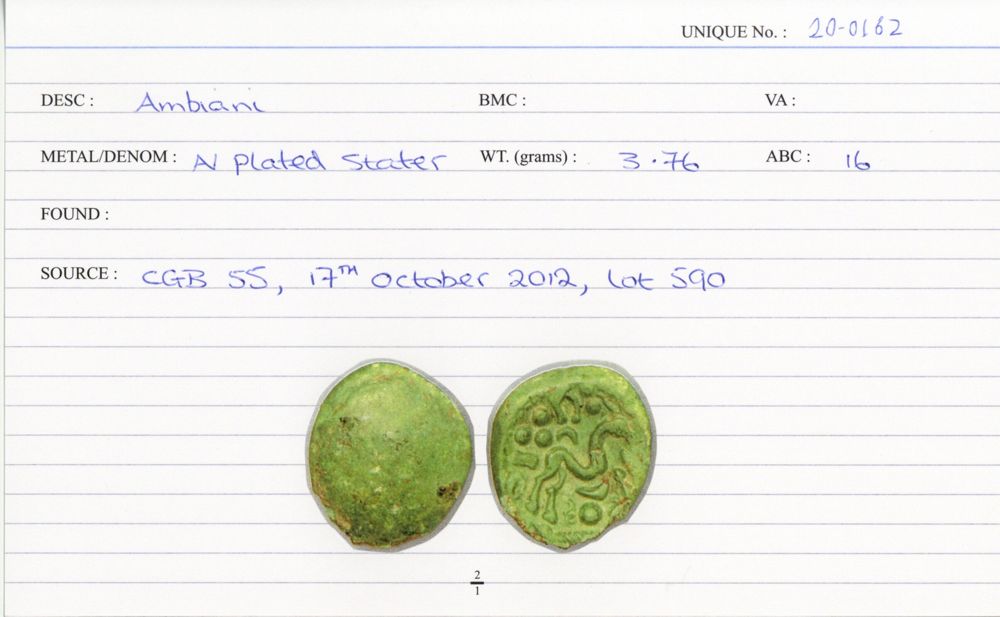 UNIQUE No. : 20-0162
DESC : Ambiani BMC : VA :
METAL/DENOM : AV Plated Stater WT. (grams) : 3.76 ABC : 16
FOUND :
SOURCE : CGB 55, 17TH October 2012, lot 590
2
1